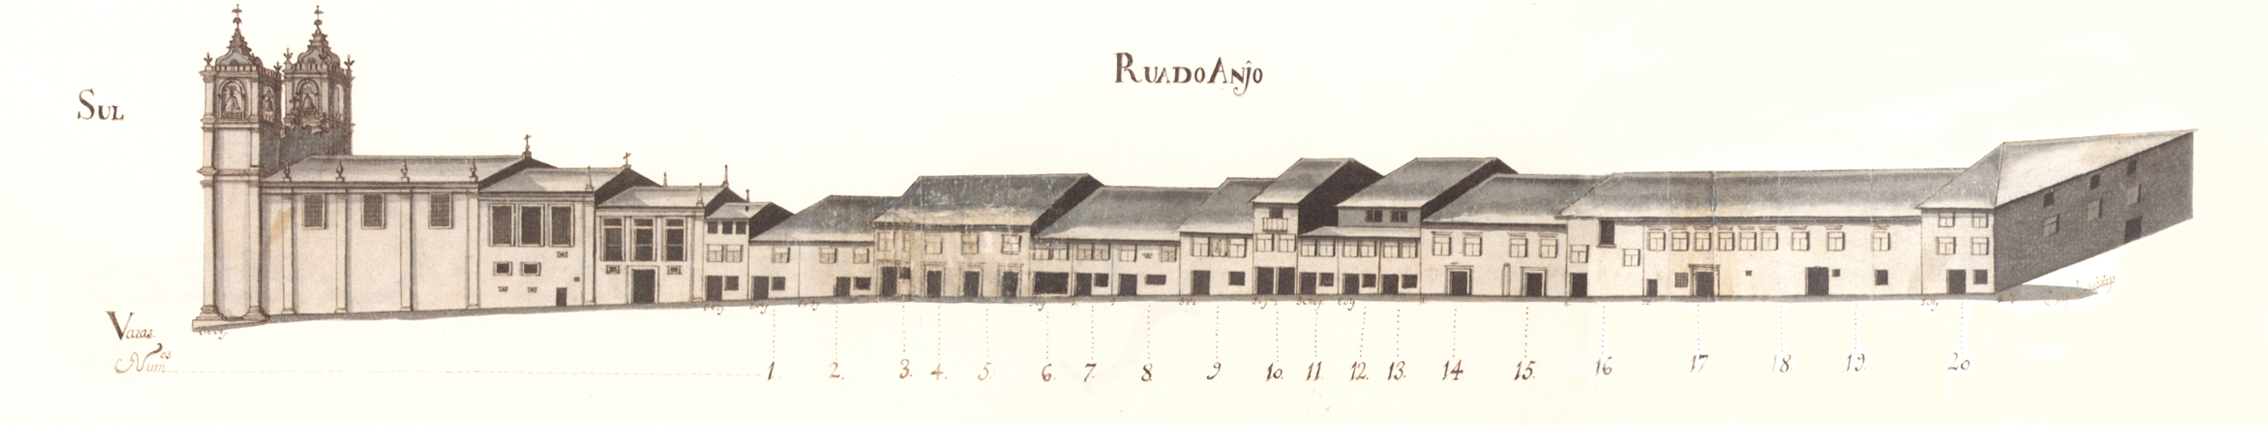 RUA DO ANJO
SUL
Varas.
Num.es 1. 2. 3. 4. 5. 6. 7. 8. 9 10. 11. 12. 13. 14 15. 16 17 18 19. 20